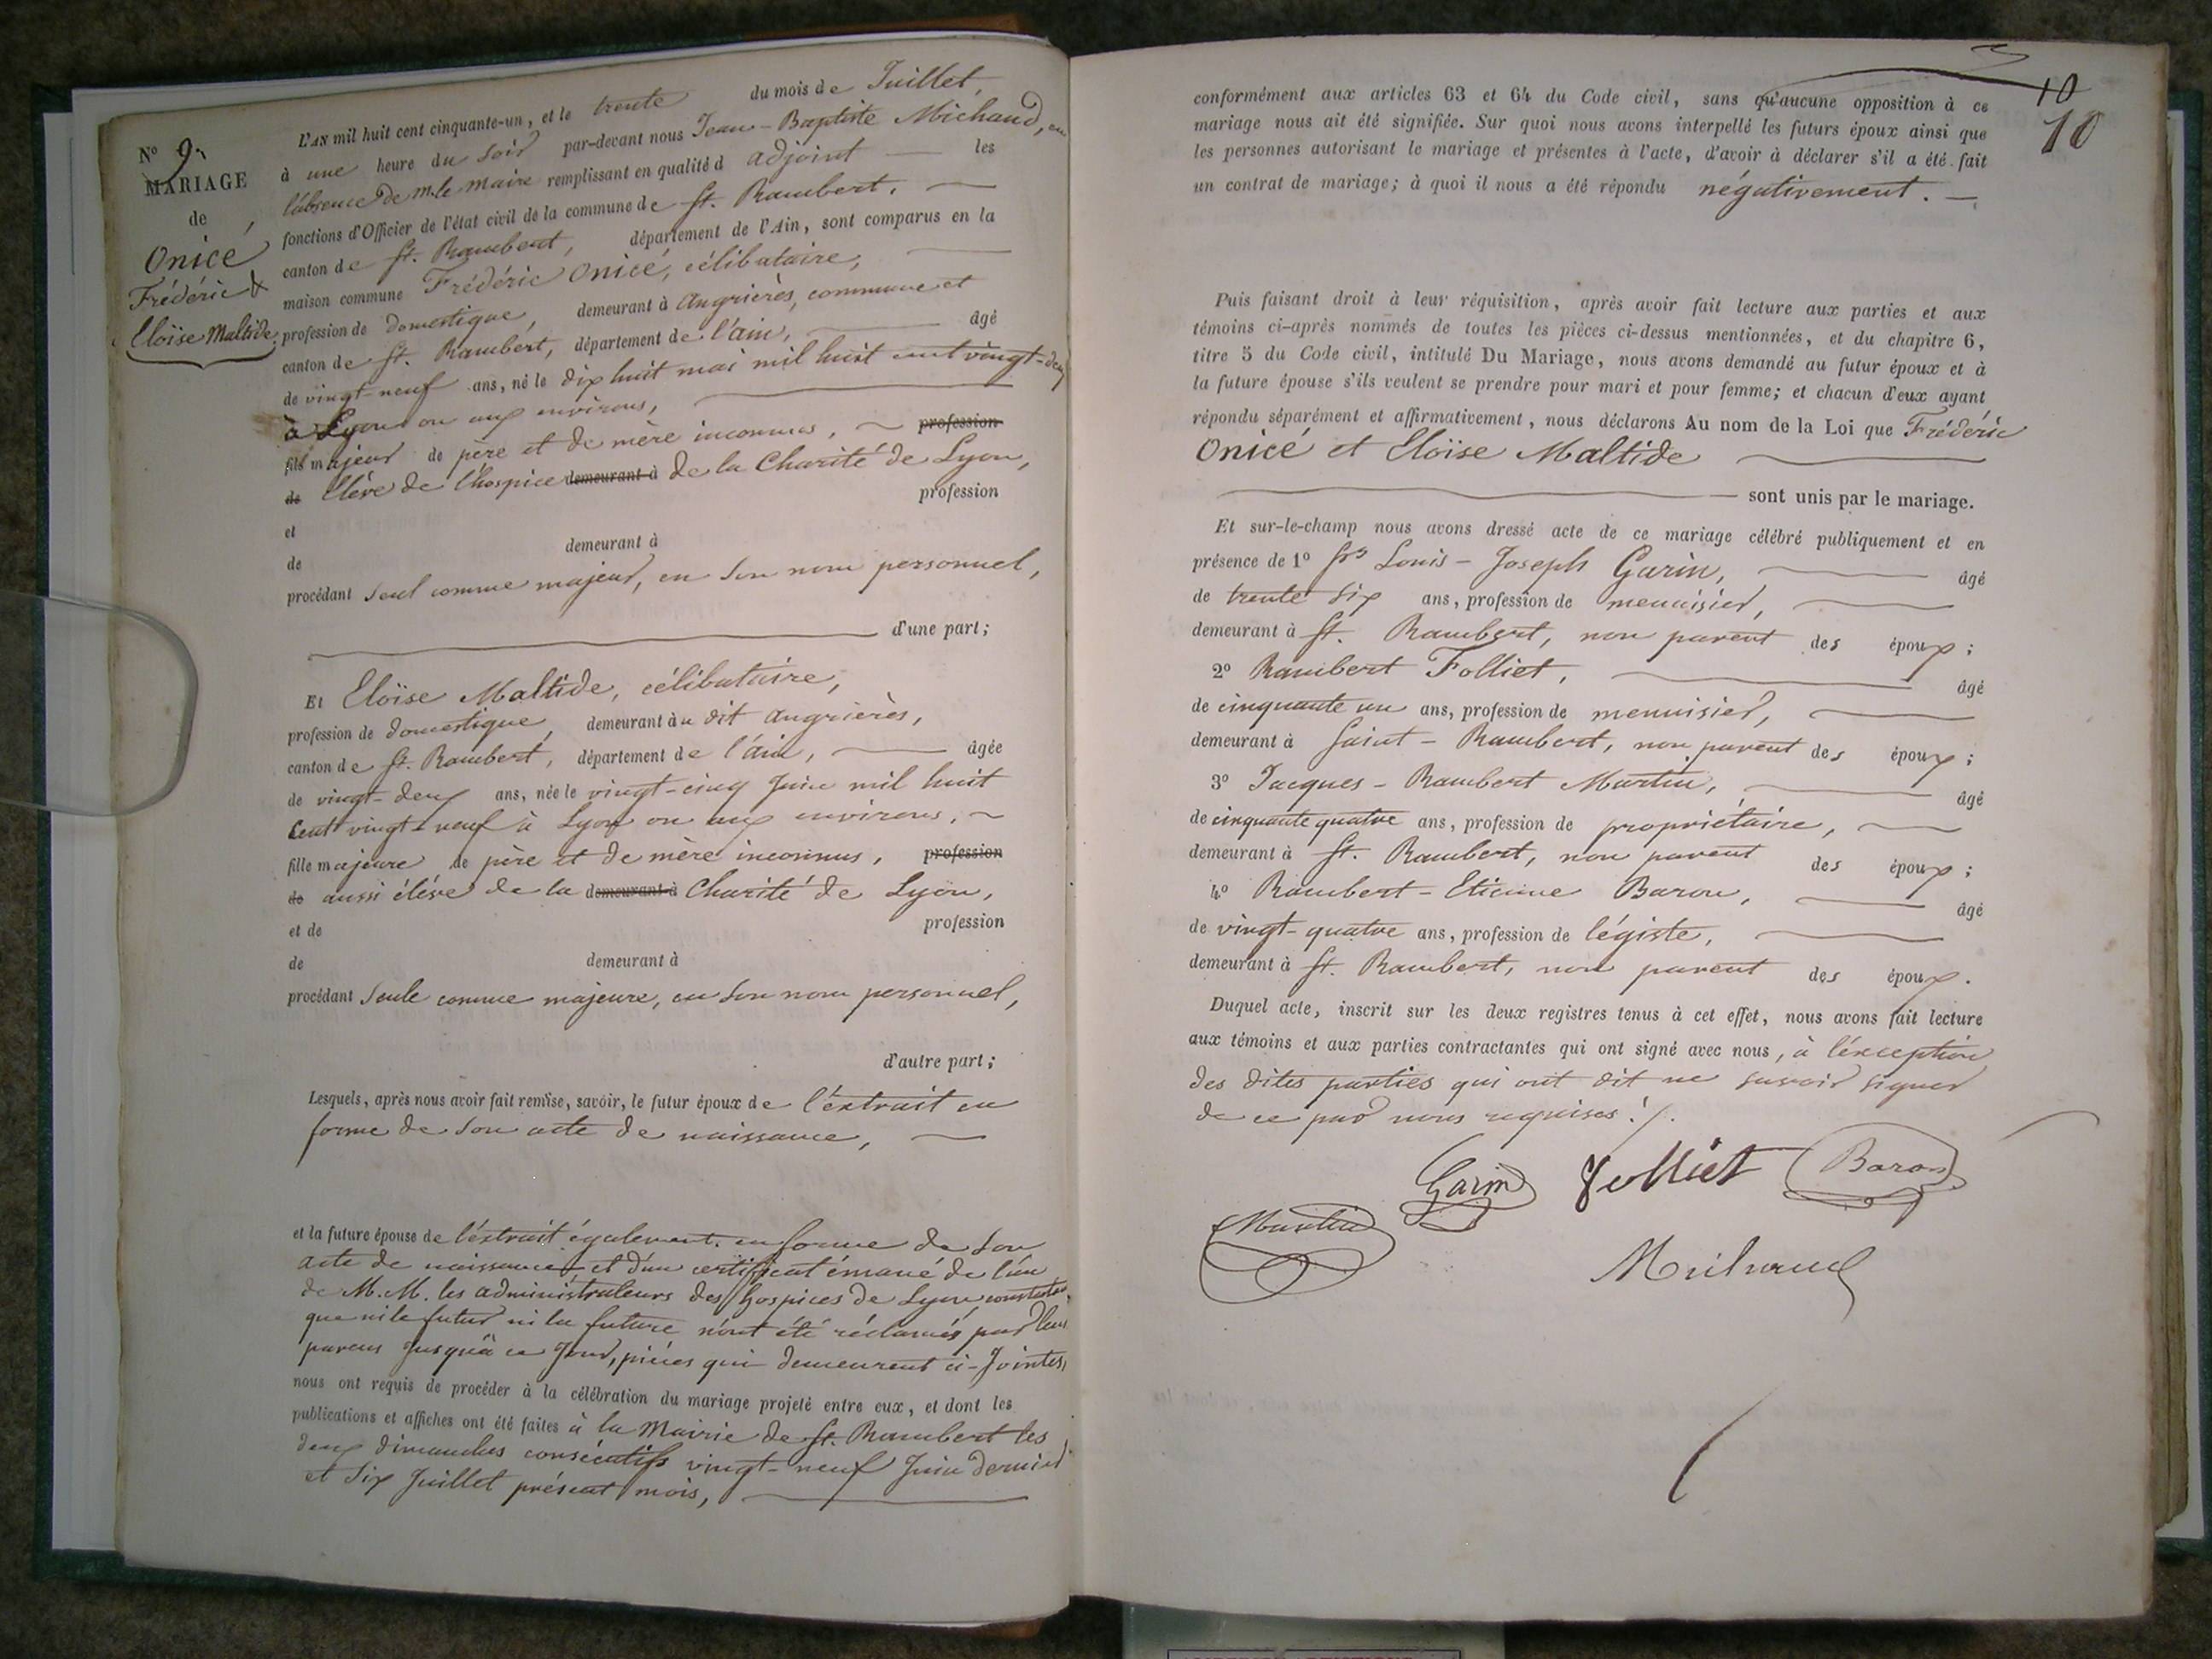 N° 9.
MARIAGE
de
Onicé
Frédéric &
Eloïse Maltide.
L'AN mil huit cent cinquante-un, et le trente du mois de Juillet,
à une heure du soir par-devant nous Jean-Baptiste Michaud, en
l'absence de m. le maire remplissant en qualité d adjoint les
fonctions d'Officier de l'état civil de la commune de St. Rambert,
canton de St. Rambert, département de l'Ain, sont comparus en la
maison commune Frédéric Onicé, célibataire,
profession de domestique, demeurant à angrières, commune et
canton de St. Rambert, département de l'ain, âgé
de vingt-neuf ans, né le dix huit mai mil huit cent vingt-deux
à Lyon ou aux environs,
fils majeur de père et de mère inconnus, profession
de Elève de l'hospice demeurant à de la Charité de Lyon,
profession
et
de demeurant à
procédant seul comme majeur, en son nom personnel,
d'une part;
Et Eloïse Maltide, célibataire,
profession de domestique, demeurant àu dit angrières,
canton de St. Rambert, département de l'ain, âgée
de vingt-deux ans, née le vingt-cinq Juin mil huit
Cent vingt-neuf à Lyon ou aux environs,
fille majeure de père et de mère inconnus, profession
de aussi élève de la demeurant à Charité de Lyon,
et de profession
de demeurant à
procédant seule comme majeure, en son nom personnel,
d'autre part;
Lesquels, après nous avoir fait remise, savoir, le futur époux de l'extrait en
forme de son acte de naissance,
et la future épouse de l'extrait également en forme de son
acte de naissance, et d'un certificat émané de l'un
de M.M. les administrateurs des hospices de Lyon constatant
que ni le futur ni la future n'ont été réclamés par leurs
parens jusqu'à ce jour, pièces qui demeurent ci-jointes,
nous ont requis de procéder à la célébration du mariage projeté entre eux, et dont les
publications et affiches ont été faites à la Mairie de St. Rambert les
deux dimanches consécutifs vingt-neuf Juin dernier
et six Juillet présent mois,
10
10
conformément aux articles 63 et 64 du Code civil, sans qu'aucune opposition à ce
mariage nous ait été signifiée. Sur quoi nous avons interpellé les futurs époux ainsi que
les personnes autorisant le mariage et présentes à l'acte, d'avoir à déclarer s'il a été fait
un contrat de mariage; à quoi il nous a été répondu négativement.
Puis faisant droit à leur réquisition, après avoir fait lecture aux parties et aux
témoins ci-après nommés de toutes les pièces ci-dessus mentionnées, et du chapitre 6,
titre 5 du Code civil, intitulé Du Mariage, nous avons demandé au futur époux et à
la future épouse s'ils veulent se prendre pour mari et pour femme; et chacun d'eux ayant
répondu séparément et affirmativement, nous déclarons Au nom de la Loi que Frédéric
Onicé et Eloïse Maltide
sont unis par le mariage.
Et sur-le-champ nous avons dressé acte de ce mariage célébré publiquement et en
présence de 1° Louis-Joseph Garin, âgé
de trente six ans, profession de menuisier,
demeurant à St. Rambert, non parent des époux;
2° Rambert Folliet, âgé
de cinquante un ans, profession de menuisier,
demeurant à Saint-Rambert, non parent des époux;
3° Jacques-Rambert Martin, âgé
de cinquante quatre ans, profession de propriétaire,
demeurant à St. Rambert, non parent des époux;
4° Rambert-Etienne Baron, âgé
de vingt-quatre ans, profession de légiste,
demeurant à St. Rambert, non parent des époux.
Duquel acte, inscrit sur les deux registres tenus à cet effet, nous avons fait lecture
aux témoins et aux parties contractantes qui ont signé avec nous, à l'exception
des dites parties qui ont dit ne savoir signer
de ce par nous requises ./.
Garin Folliet Baron
Martin
Michaud